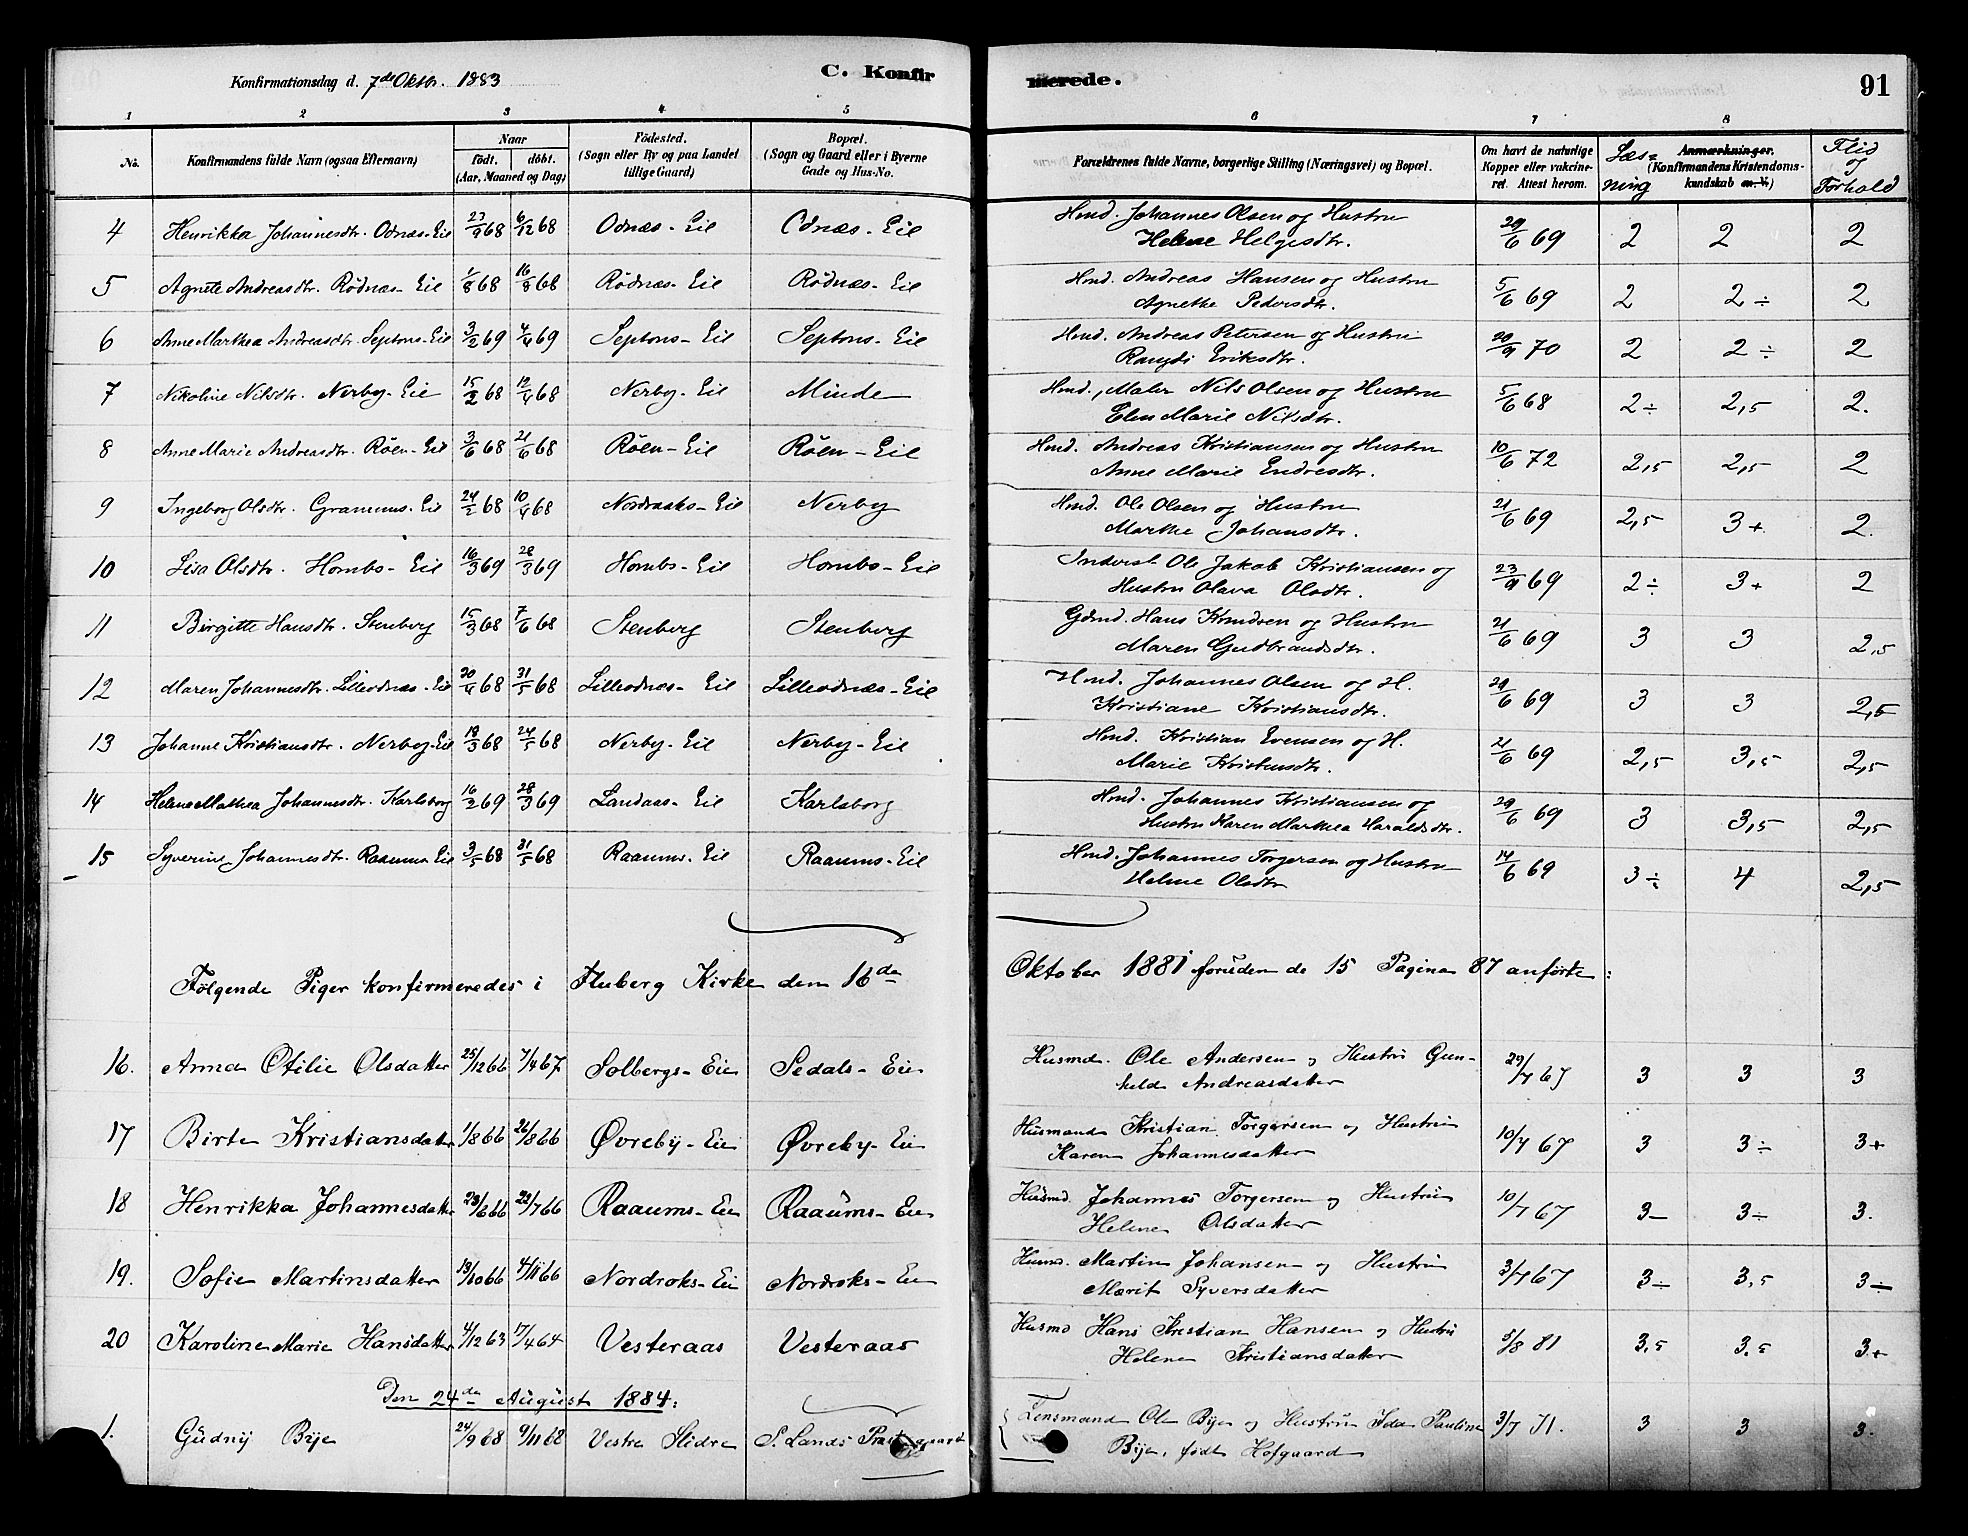 Konfirmationsdag d. 7de Oktbr. 1883
C. Konfirmerede.
91
1 2 3 4 5 6 7 8
No. Konfirmandens fulde Navn (ogsaa Efternavn) Naar født. døbt. (Aar, Maaned og Dag) Födested. (Sogn eller By og paa Landet tillige Gaard) Bopæl. (Sogn og Gaard eller i Byerne Gade og Hus-No. Forældrenes fulde Navne, borgerlige Stilling (Næringsvei) og Bopæl. Om havt de naturlige Kopper eller vakcineret. Attest herom. Læsning Anmærkninger. (Konfirmandens Kristendomskundskab m. V.) Flid og Forhold
4 Henrikka Johannesdtr. Odnæs-Eil 23/9 68 6/12 68 Odnæs-Eil Odnæs-Eil Hmd. Johannes Olsen og Hustru 29/6 69 2 2 2
Helene Helgesdtr.
5 Agnete Andreasdtr. Rödnæs-Eil 1/8 68 16/8 68 Rödnæs-Eil Rödnæs-Eil Hmd. Andreas Hansen og Hustru 5/6 69 2 2÷ 2
Agnethe Pedersdtr.
6 Anne Marthea Andreasdtr. Septons-Eil 3/2 69 4/4 69 Septons-Eil Septons-Eil Hmd. Andreas Petersen og Hustru 20/9 70 2 2÷ 2
Eriksdtr.
7 Nikoline Nilsdtr. Nerby-Eie 15/2 68 12/4 68 Nerby-Eil Minde Hmd., Maler Nils Olsen og Hustru 5/6 68 2÷ 2,5 2.
Elen Marie Nilsdtr.
8 Anne Marie Andreasdtr. Röen-Eil 3/6 68 21/6 68 Röen-Eil Röen-Eil Hmd. Andreas Kristiansen og Hustru 10/6 72 2,5 2,5 2
Anne Marie Endresdtr.
9 Ingeborg Olsdtr. Gramms-Eil 24/2 68 10/4 68 Nordraaks-Eil Nerby Hmd. Ole Olsen og Hustru 21/6 69 2,5 3+ 2.
Marthe Johansdtr.
10 Lisa Olsdtr. Hombs-Eil 16/3 69 28/3 69 Hombs-Eil Hombs-Eil Inderst Ole Jakob Kristiansen og 23/9 69 2÷ 3+ 2
Hustru Olava Olsdtr.
11 Birgitte Hansdtr. Stenberg 15/3 68 7/6 68 Stenberg Stenberg Gdmd. Hans Knudsen og Hustru 21/6 69 3 3 2,5
Maren Gudbrandsdtr.
12 Maren Johannesdtr. Lilleodnæs-Eil 30/4 68 31/5 68 Lilleodnæs-Eil Lilleodnæs-Eil Hmd. Johannes Olsen og H. 29/6 69 3 3 2,5
Kristiane Kristiansdtr.
13 Johanne Kristiansdtr. Nerby-Eil 18/3 68 24/5 68 Nerby-Eil Nerby-Eil Hmd. Kristian Evensen og H. 21/6 69 2,5 3,5 2,5
Marie Kristensdtr.
14 Helene Mathea Johannesdtr. Karlsborg 16/2 69 28/3 69 Landaas-Eil Karlsborg Hmd. Johannes Kristiansen og 29/6 69 3 3,5 2,5
Hustru Karen Marthea Haraldsdtr.
15 Syverine Johannesdtr. Raaums-Eil 3/5 68 31/5 68 Raaums-Eil Raaums-Eil Hmd. Johannes Torgersen og Hustru 14/6 69 3÷ 4 2,5
Helene Olsdtr
Følgende Piger konfirmeredes i Fluberg Kirke den 16de Oktober 1881 foruden de 15 Pagina 87 anførte:
16. Anna Otilie Olsdatter 25/12 66 7/4 67 Solbergs-Eie Sedals-Eie Husmd. Ole Andersen og Hustru Gun- 29/7 67 3 3 3
hild Andreasdatter
17 Birte Kristiansdatter 1/8 66 26/8 66 Øvreby-Eie Øvreby-Eie Husmand Kristian Torgersen og Hustru 10/7 67 3 3÷ 3+
Karen Johannesdatter
18 Henrikka Johannesdatter 23/6 66 22/7 66 Raaums-Eie Raaums-Eie Husmd. Johannes Torgersen og Hustru 10/7 67 3- 3÷ 3.
Helene Olsdatter
19. Sofie Martinsdatter 19/10 66 4/11 66 Nordroks-Eie Nordroks-Eie Husmd. Martin Johansen og Hustru 3/7 67 3÷ 3,5 3÷
Marit Syversdatter
20 Karoline Marie Hansdatter 4/12 63 17/4 64 Vesteraas Vesteraas Husmd Hans Kristian Hansen og Hustru 5/8 81 3,5 3,5 3+
Helene Kristiansdatter
Den 24de August 1884:
1. Gudny Bye 24/9 68 9/11 68 Vestre Slidre S. Lands Præstegaard Lensmand Ole Bye og Hustru Ida Pauline 3/7 71. 3 3 3.
Bye, født Hofgaard